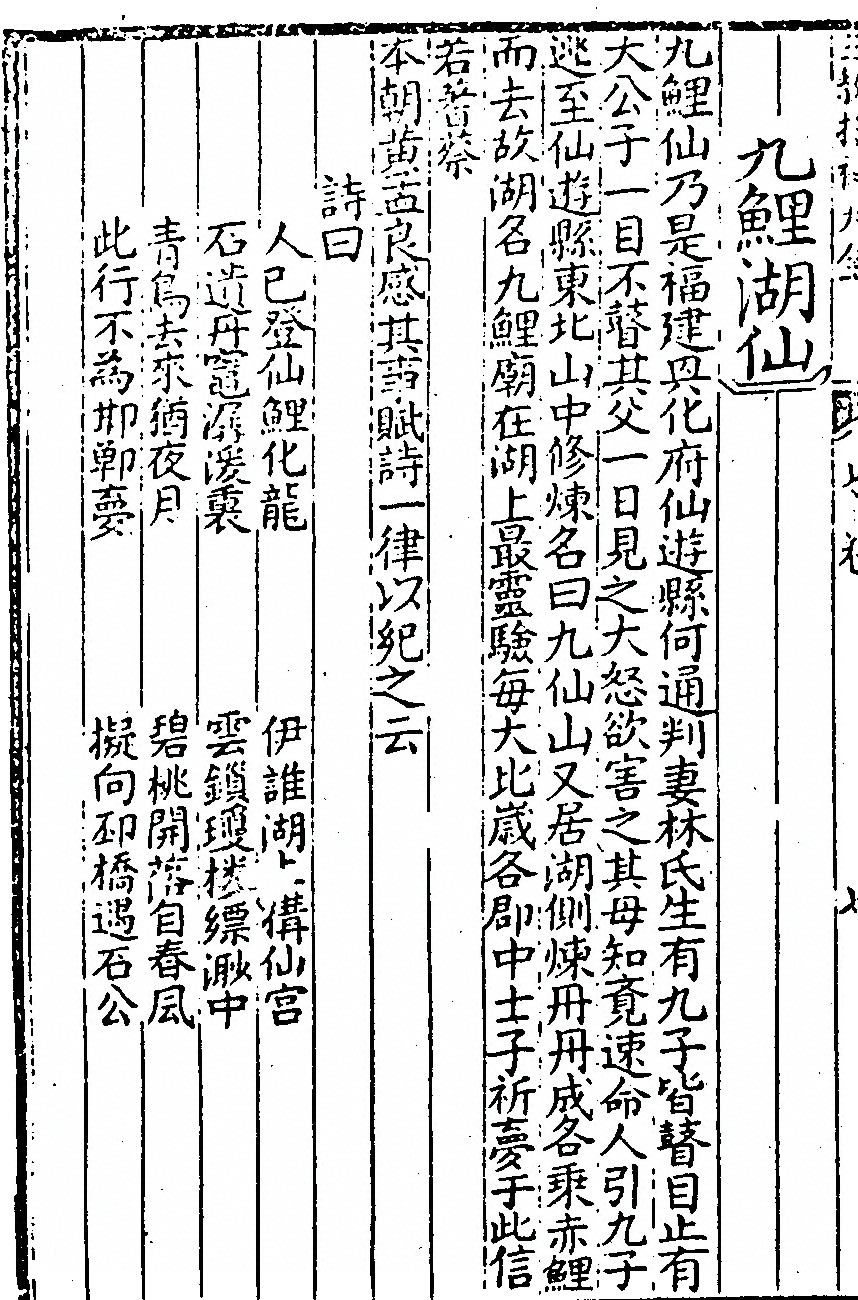 九鯉湖仙
九鯉仙乃是福建興化府仙遊縣何通判妻林氏生有九子皆瞽目止有
大公子一目不瞽其父一日見之大怒欲害之其母知覺速命人引九子
逃至仙遊縣東北山中修煉名曰九仙山又居湖側煉丹丹成各乘赤鯉
而去故湖名九鯉廟在湖上最靈驗每大比歲各郡中士子祈夢于此信
若蓍蔡
本朝黃孟良感其事賦詩一律以紀之云
詩曰
人已登仙鯉化龍 伊誰湖上搆仙宮
石遺丹竈潺湲裏 雲鎖瓊樓縹渺中
青鳥去來猶夜月 碧桃開落自春風
此行不為邯鄲夢 擬向邳橋遇石公